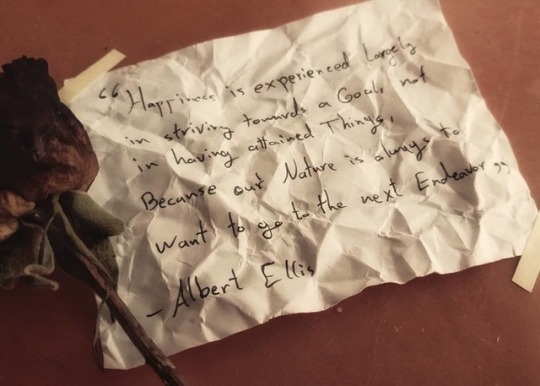 “Happiness is experienced largely
in striving towards a Goal, not
in having attained Things,
Because our Nature is always to
want to go to the next Endeavor”
- Albert Ellis